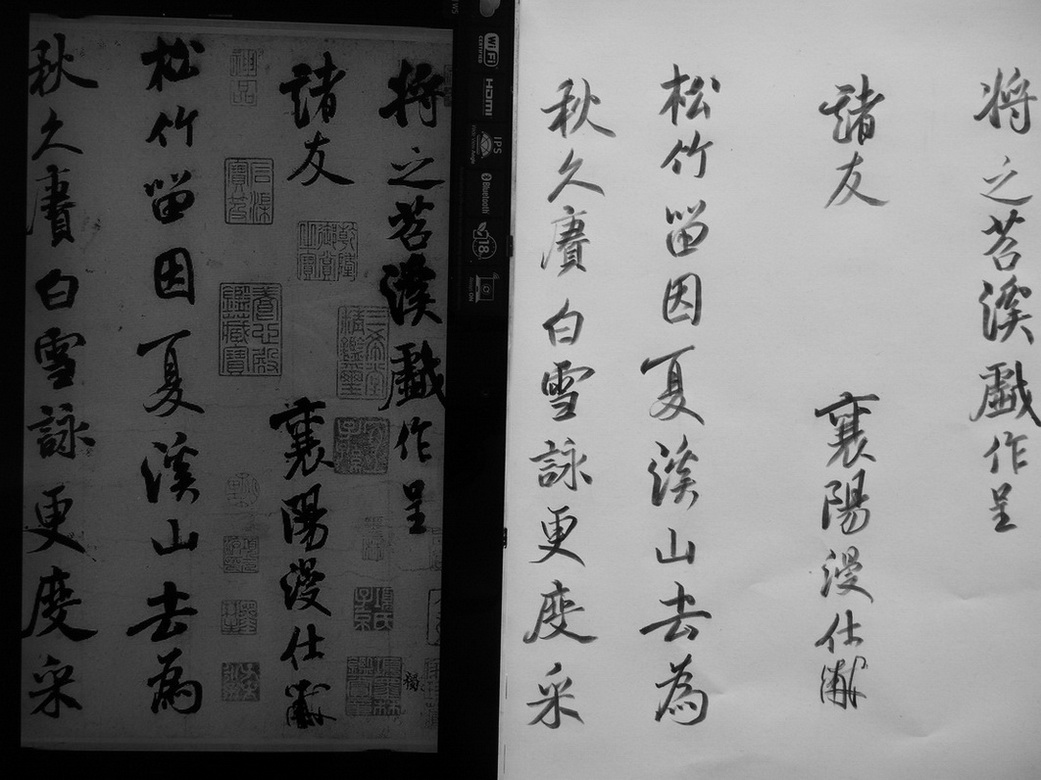 將之苕溪戲作呈
諸友
襄陽漫仕黻
松竹留因夏溪山去為
秋久賡白雪詠更度采
神品
WiFi
CERTIFIED
HDMI
IPS
Bluetooth
18
將之苕溪戲作呈
諸友
襄陽漫仕黻
松竹留因夏溪山去為
秋久賡白雪詠更度采